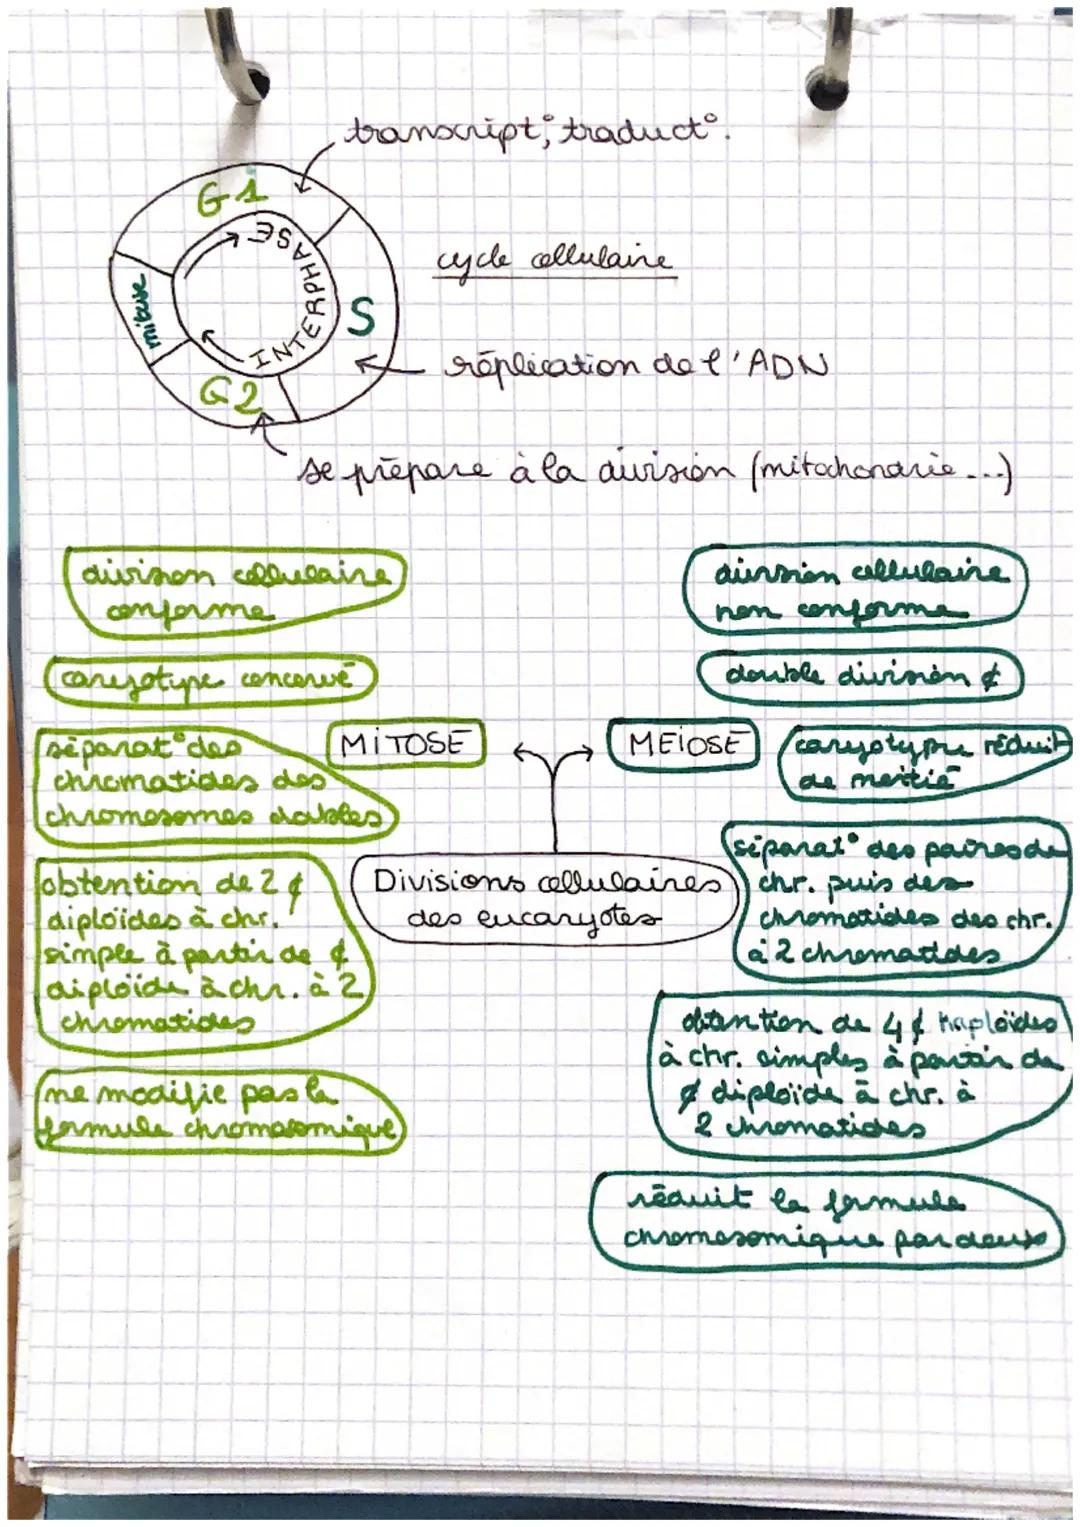 transcript°, traduct°.
G1
INTERPHASE
cycle cellulaire
mitose
S
réplication de l'ADN
G2
se prépare à la division (mitochondrie...)
division cellulaire
conforme
caryotype concervé
séparat° des
chromatides des
chromosomes doubles
obtention de 2 ¢
diploïdes à chr.
simple à partir de ¢
diploïde à chr. à 2
chromatides
ne modifie pas la
formule chromosomique
MITOSE
MEÏOSE
Divisions cellulaires
des eucaryotes
division cellulaire
non conforme
double division ¢
caryotype réduit
de moitié
séparat° des paires de
chr. puis des
chromatides des chr.
à 2 chromatides
obtention de 4 ¢ haploïdes
à chr. simples à partir de
¢ diploïde à chr. à
2 chromatides
réduit la formule
chromosomique par deux